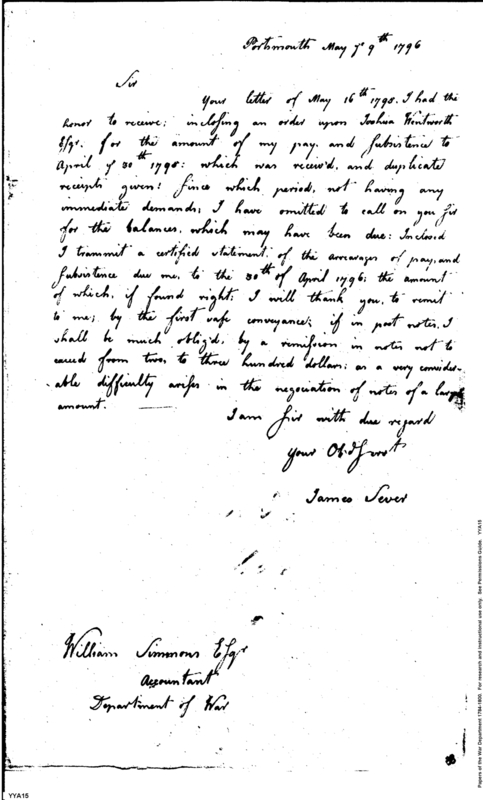 Portsmouth May ye 9th 1796
Sir
Your letter of May 16th 1795. I had the
honor to receive; inclosing an order upon Joshua Wentworth
Esqr. for the amount of my pay, and subsistence to
April ye 30th 1795: which was receiv'd, and duplicate
receipts given: since which, period, not having any
immediate demands; I have omitted to call on you sir
for the balances, which may have been due: Inclosed
I transmit a certified statement of the arrearages of pay, and
subsistence due me, to the 30th of April 1796; the amount
of which, if found right; I will thank you, to remit
to me; by the first safe conveyance; if in post notes, I
shall be much oblig'd, by a remission in notes not to
exceed from two, to three hundred dollars; as a very consider-
able difficulty arises in the negociation of notes of a large
amount.
I am sir with due regard
your Obd Servt
James Sever
William Simmons Esqr
Accountant
Department of War
Papers of the War Department 1784-1800. For research and instructional use only. See Permissions Guide. YYA15
YYA15